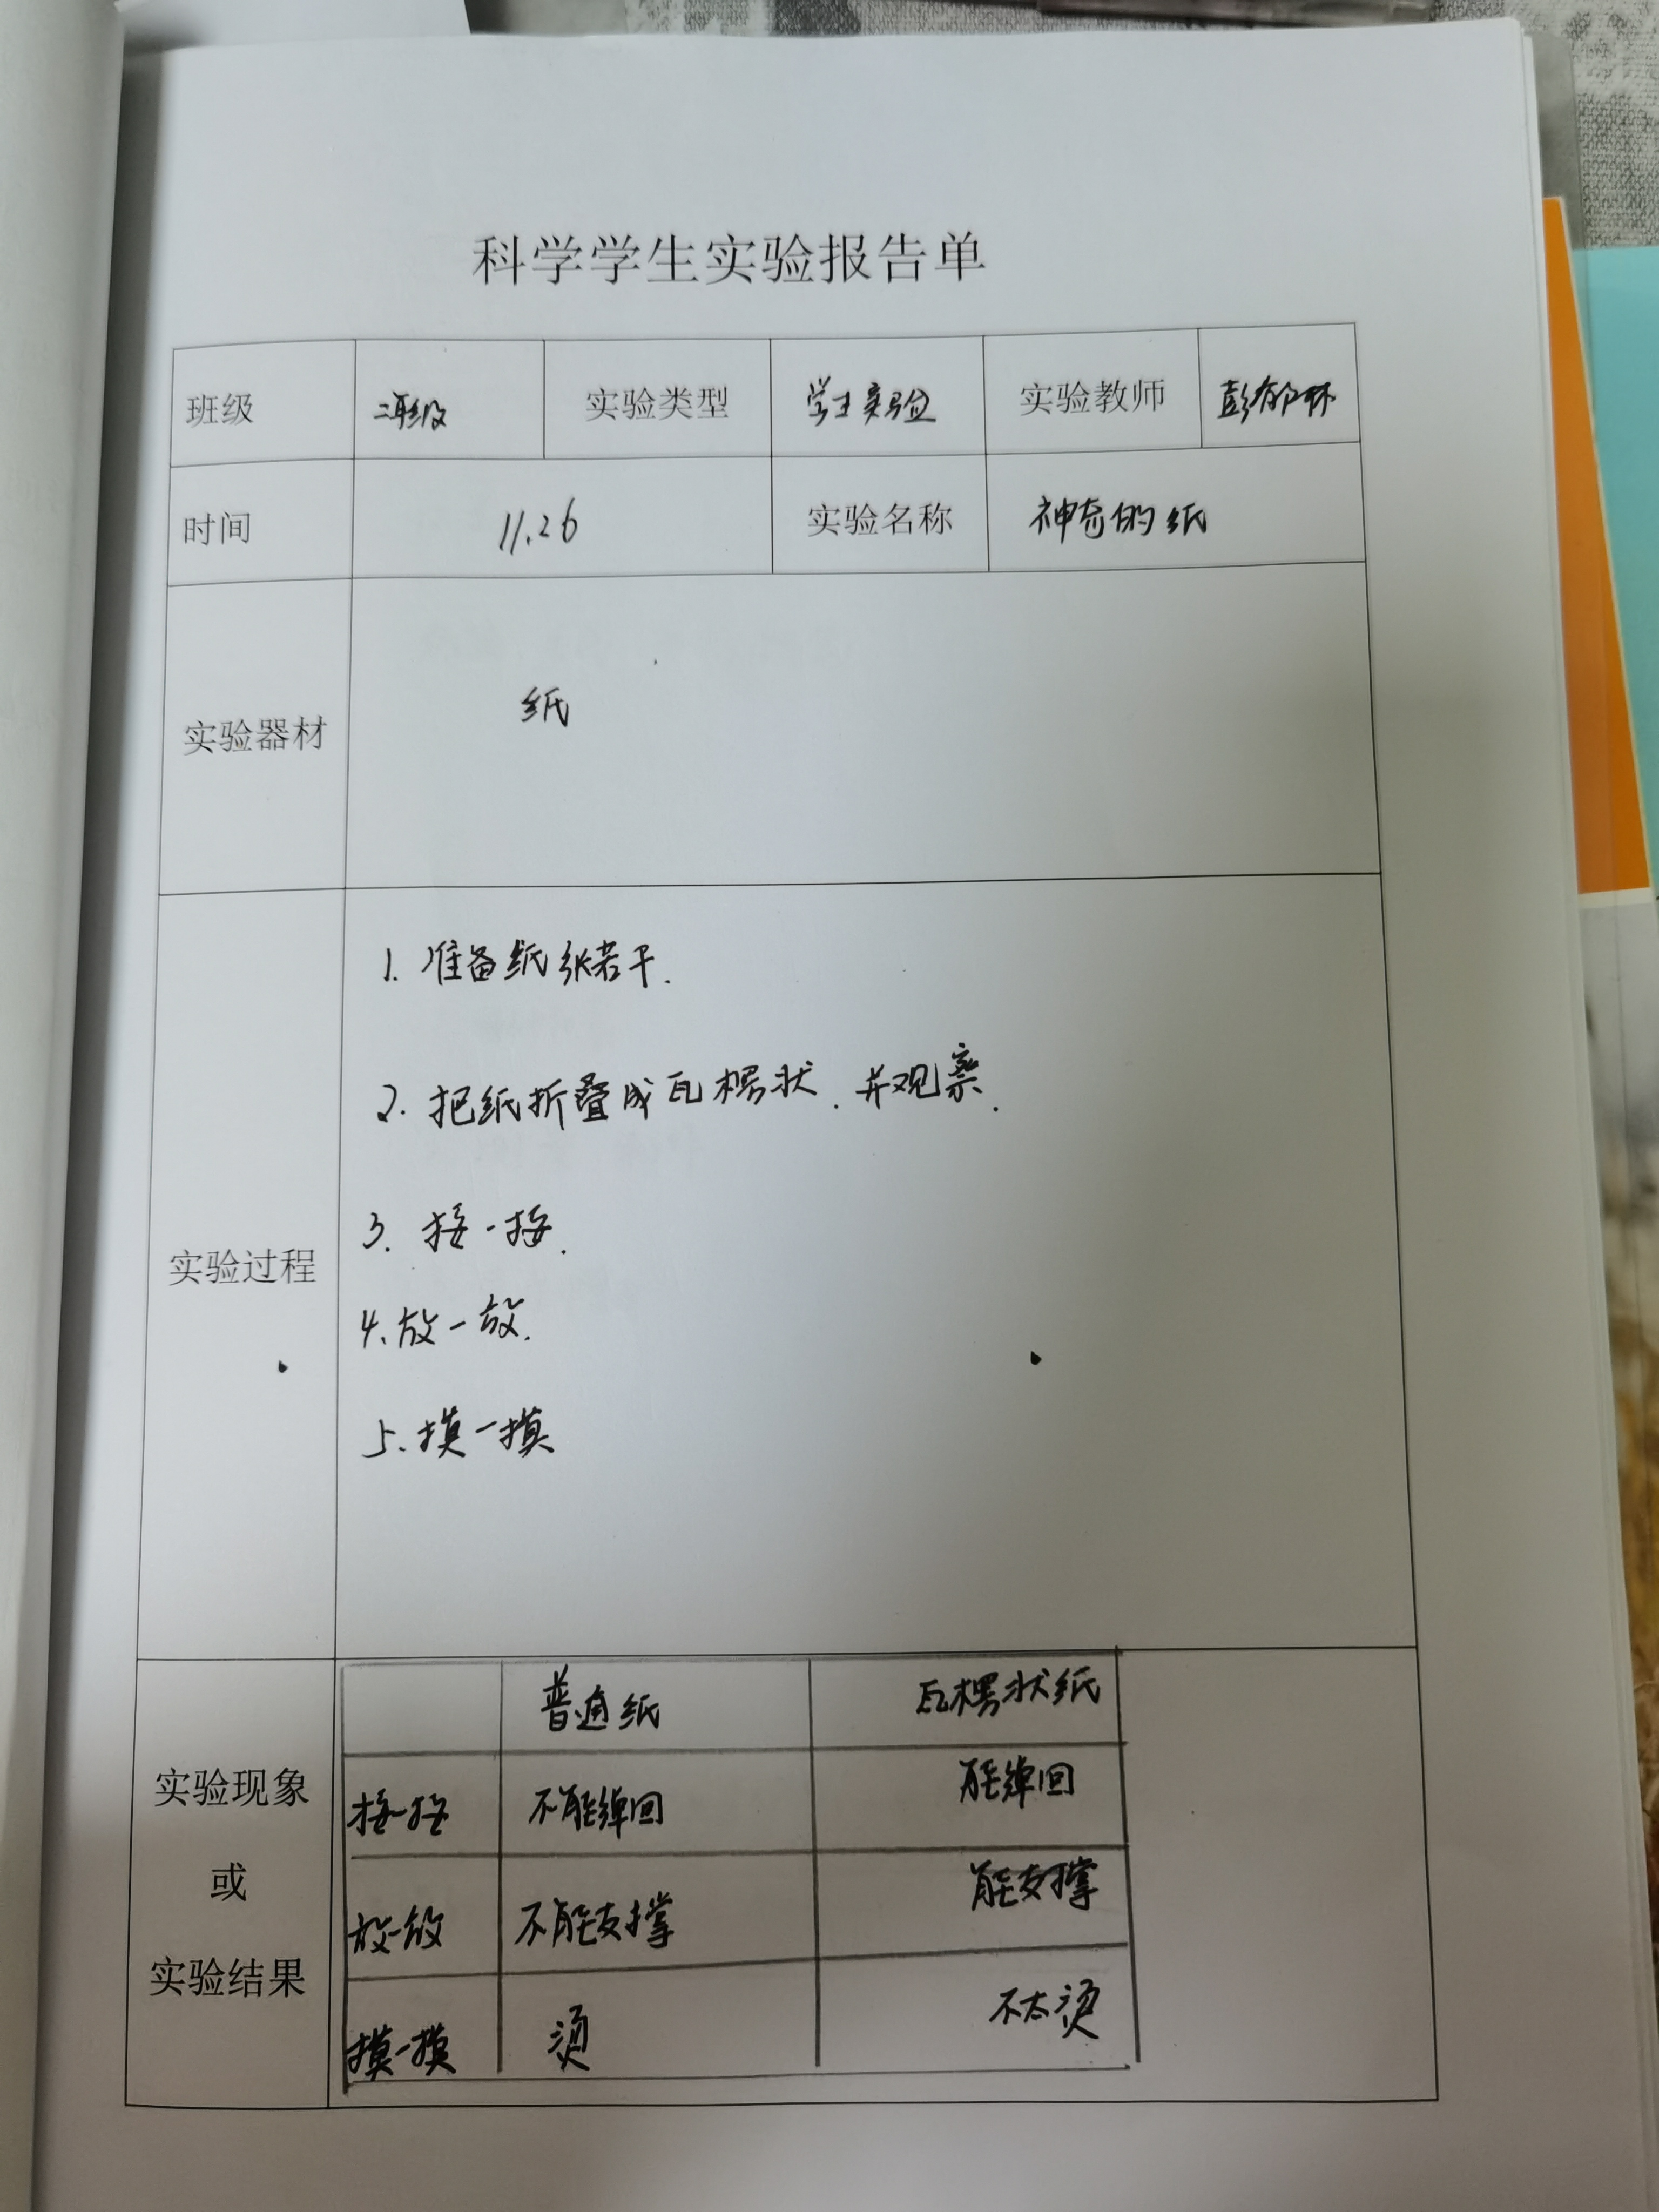 科学学生实验报告单
班级 二年级 实验类型 学生实验 实验教师 彭
时间 11.26 实验名称 神奇的纸
实验器材 纸
实验过程
1. 准备纸张若干.
2. 把纸折叠成瓦楞状.并观察.
3. 按一按.
4. 放一放.
5. 摸一摸
实验现象
或
实验结果
普通纸 瓦楞状纸
按一按 不能弹回 能弹回
放一放 不能支撑 能支撑
摸一摸 烫 不太烫